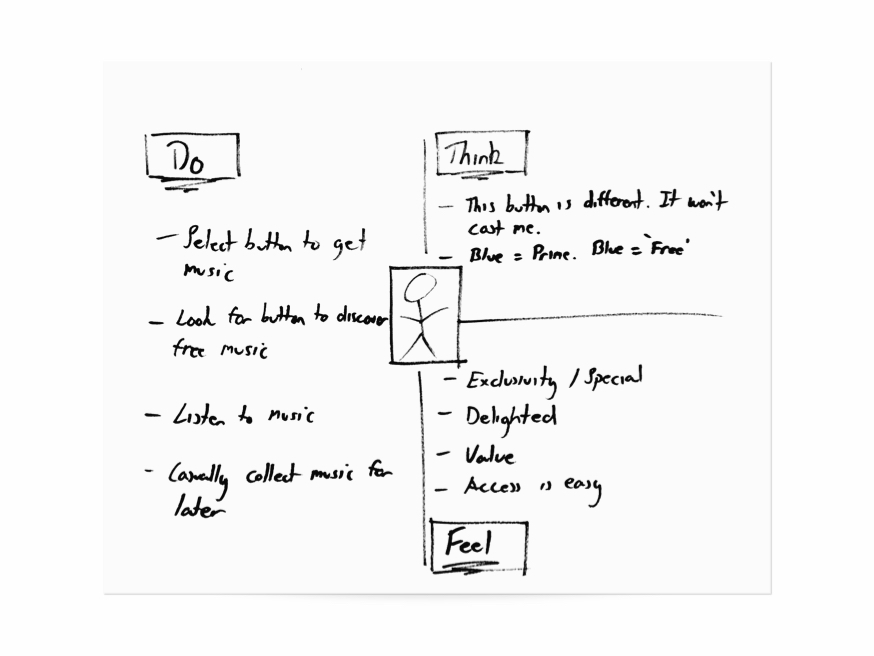 Do
- Select button to get
music
- Look for button to discover
free music
- Listen to music
- Casually collect music for
later
Think
- This button is different. It won't
cost me.
- Blue = Prime. Blue = 'Free'
- Exclusivity / Special
- Delighted
- Value
- Access is easy
Feel